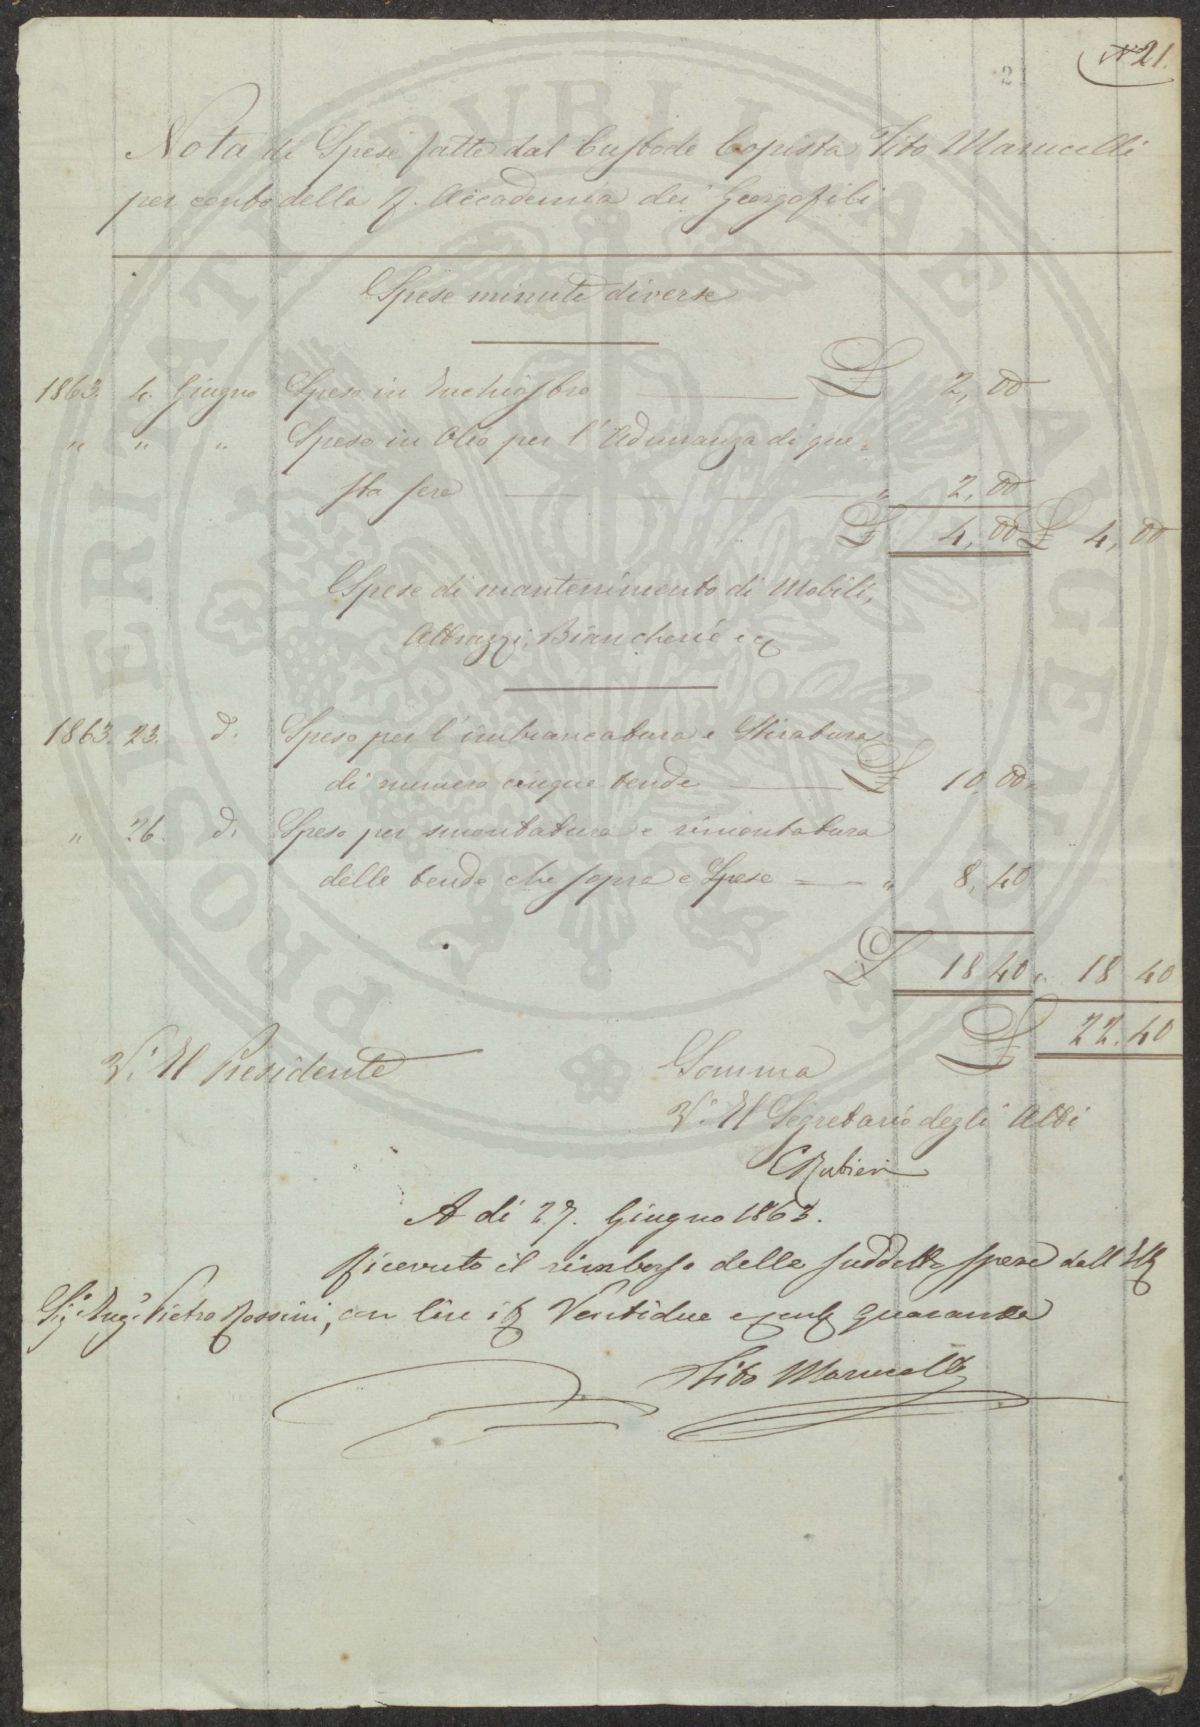 N° 21.
2
Nota di Spese fatte dal Custode Copista Tito Marucelli
per conto della R. Accademia dei Georgofili
Spese minute diverse
1863. 4. Giugno Speso in Inchiostro £ 2,00
" " " Speso in Olio per l'Adunanza di que=
sta sera " 2,00
£ 4,00 £ 4,00
Spese di mantenimento di Mobili,
Attrazzi, Biancherie
1863. 23. d. Speso per l'imbiancatura e Stiratura
di numero cinque tende £ 10 00
" 26. d. Speso per smontatura e rimontatura
delle tende che sopra e Spese " 8,40
£ 18 40 " 18 40
£ 22.40
V. Il Presidente
Somma
V. Il Segretario degli Atti
C Rubieri
A dì 27. Giugno 1863.
Ricevuto il rimborso delle suddette spese dall'
Sig. Pietro Rossini, in lire Ventidue e quaranta
Tito Marucelli
PROSPERITATI PVBLICAE AVGENDAE